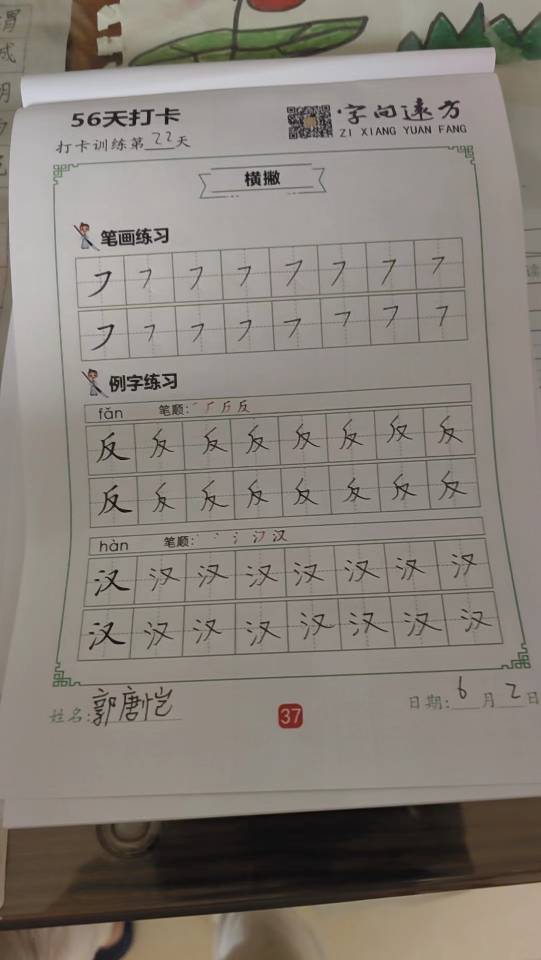 56天打卡
字向远方
ZI XIANG YUAN FANG
打卡训练第22天
横撇
笔画练习
㇇ ㇇ ㇇ ㇇ ㇇ ㇇ ㇇ ㇇
㇇ ㇇ ㇇ ㇇ ㇇ ㇇ ㇇ ㇇
例字练习
fǎn 笔顺: 一 厂 反 反
反 反 反 反 反 反 反 反
反 反 反 反 反 反 反 反
hàn 笔顺: 丶 丶 氵 汉 汉
汉 汉 汉 汉 汉 汉 汉 汉
汉 汉 汉 汉 汉 汉 汉 汉
姓名:郭唐恺
37
日期:6月2日